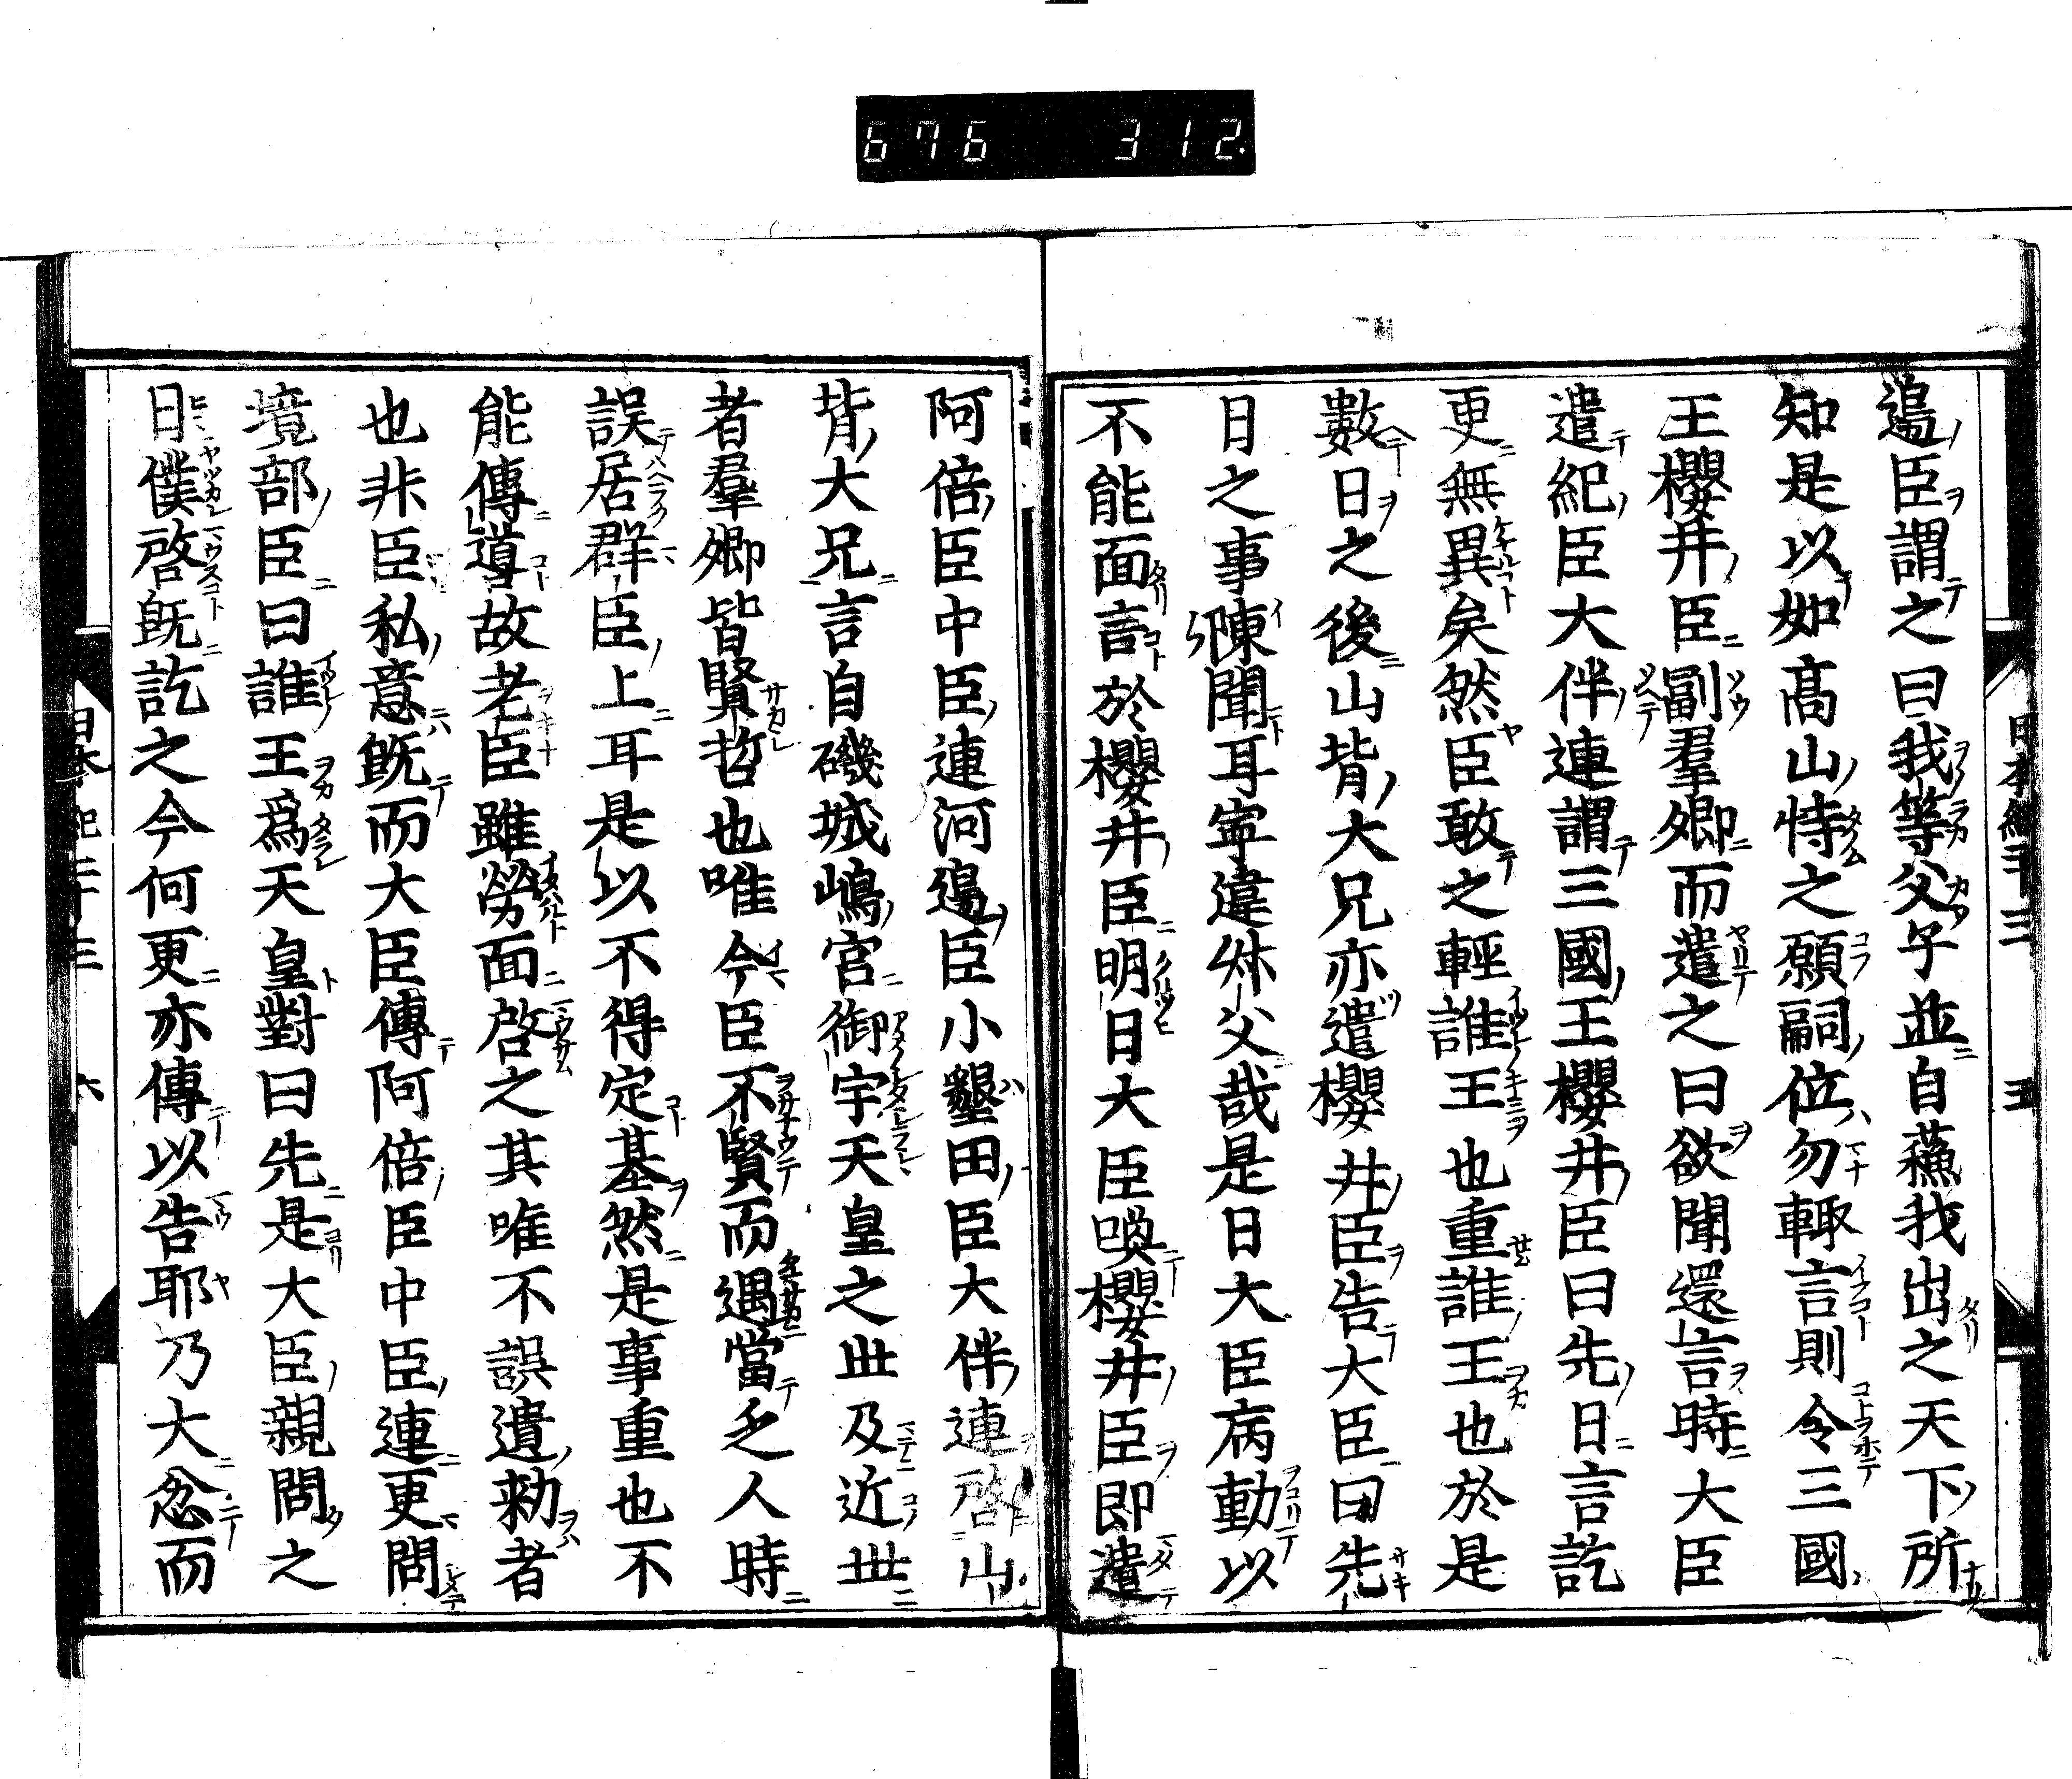 676 312
邉臣謂之曰我等父子並自蘓我出之天下所
知是以如髙山恃之願嗣位勿輙言則令三國
王櫻井臣副羣卿而遣之曰欲聞還言時大臣
遣紀臣大伴連謂三國王櫻井臣曰先日言訖
更無異矣然臣敢之輕誰王也重誰王也於是
數日之後山背大兄亦遣櫻井臣告大臣曰先
日之事陳聞耳寧違叔父哉是日大臣病動以
不能面言於櫻井臣明日大臣喚櫻井臣即遣
阿倍臣中臣連河邉臣小墾田臣大伴連啓山
背大兄言自磯城嶋宮御宇天皇之世及近世
者羣卿皆賢哲也唯今臣不賢而遇當乏人時
誤居群臣上耳是以不得定基然是事重也不
能傳導故老臣雖勞面啓之其唯不誤遺勅者
也非臣私意既而大臣傳阿倍臣中臣連更問
境部臣曰誰王爲天皇對曰先是大臣親問之
日僕啓既訖之今何更亦傳以告耶乃大忿而